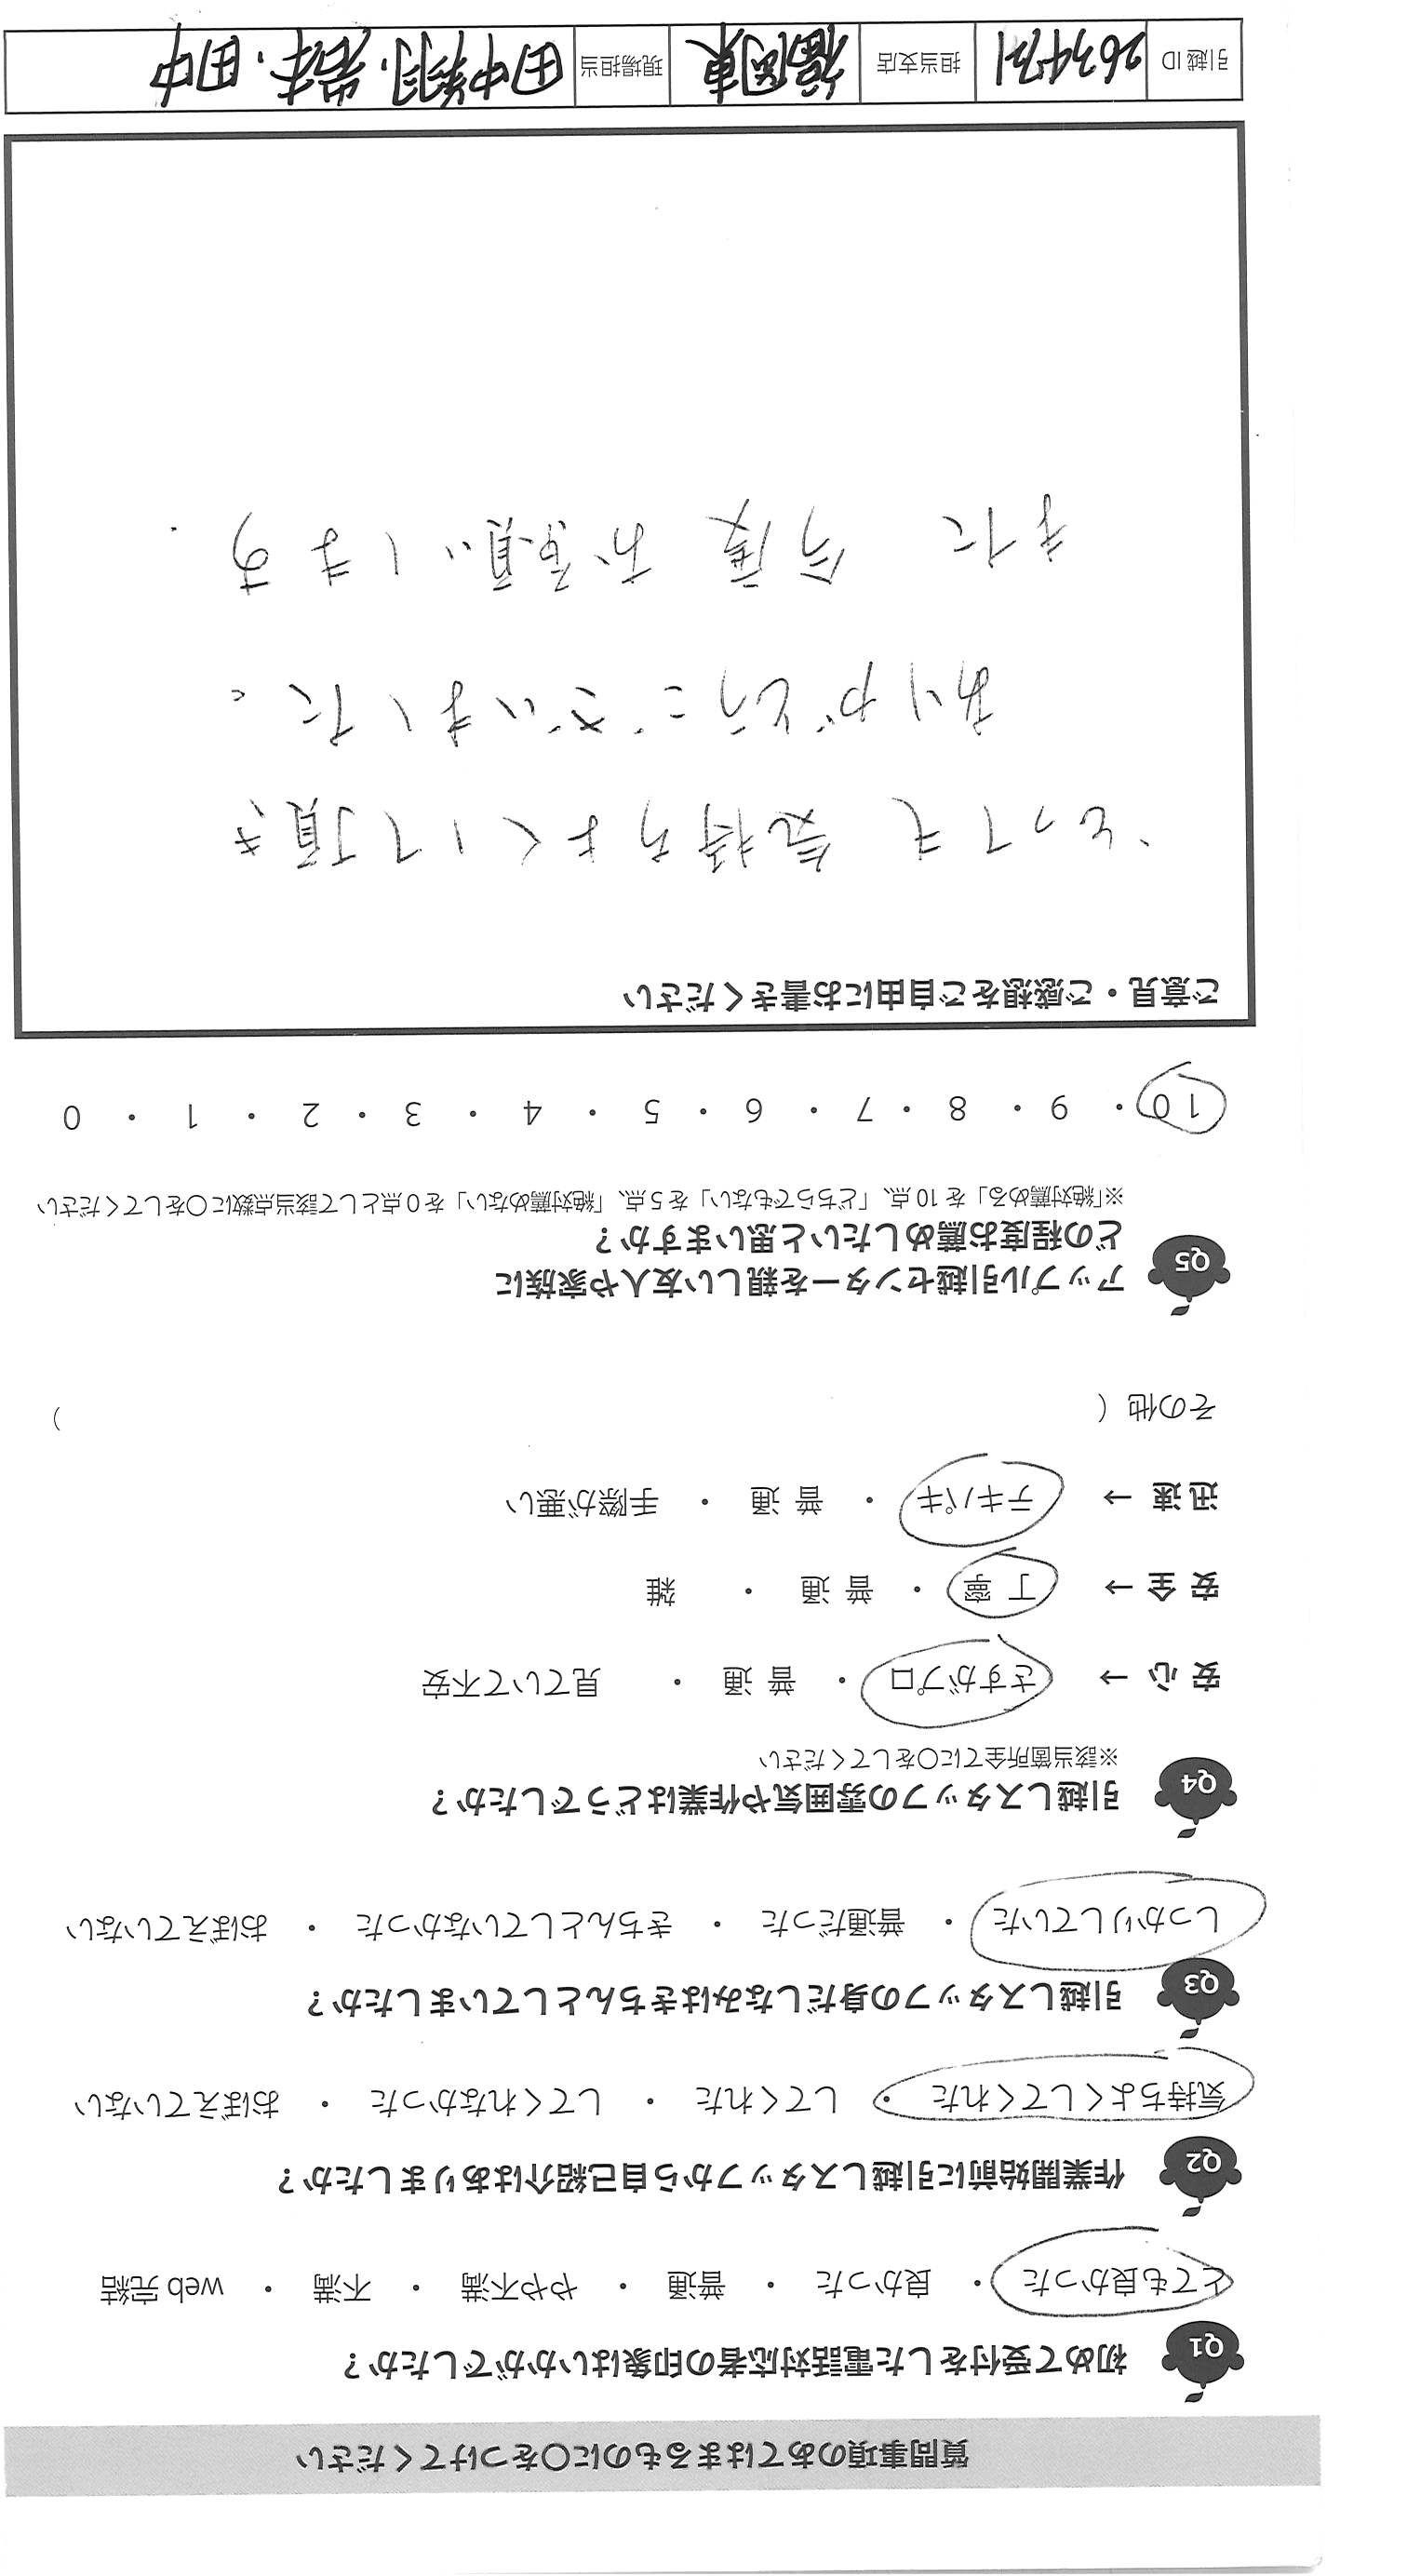 質問事項のあてはまるものに○をつけてください
Q1 初めて受付をした電話対応者の印象はいかがでしたか？
とても良かった ・ 良かった ・ 普通 ・ やや不満 ・ 不満 ・ web 完結
Q2 作業開始前に引越しスタッフから自己紹介はありましたか？
気持ちよくしてくれた ・ してくれた ・ してくれなかった ・ おぼえていない
Q3 引越しスタッフの身だしなみはきちんとしていましたか？
しっかりしていた ・ 普通だった ・ きちんとしていなかった ・ おぼえていない
Q4 引越しスタッフの雰囲気や作業はどうでしたか？
※該当箇所全てに○をしてください
安 心 → さすがプロ ・ 普 通 ・ 見ていて不安
安 全 → 丁 寧 ・ 普 通 ・ 雑
迅 速 → テキパキ ・ 普 通 ・ 手際が悪い
その他（ ）
Q5 アップル引越センターを親しい友人や家族に
どの程度お薦めしたいと思いますか？
※「絶対薦める」を 10 点、「どちらでもない」を 5 点、「絶対薦めない」を 0 点として該当点数に○をしてください
10 ・ 9 ・ 8 ・ 7 ・ 6 ・ 5 ・ 4 ・ 3 ・ 2 ・ 1 ・ 0
ご意見・ご感想をご自由にお書きください
とっても 気持ちよくして頂き
ありがとうございました。
また 今度 お願いします.
引越 ID 2634731 担当支店 福岡東 現場担当 田中翔, 岩本, 田中